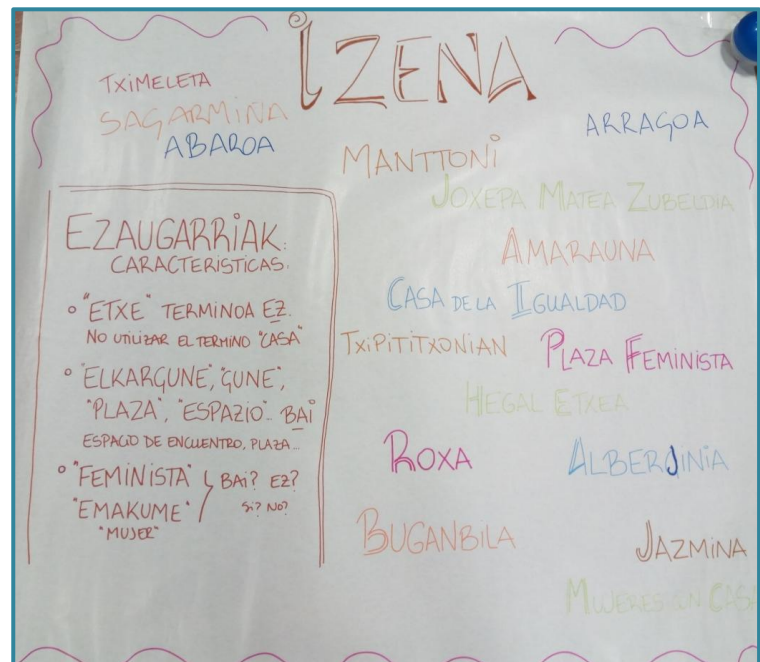 IZENA
TXIMELETA
SAGARMINA
ABAROA
ARRAGOA
MANTTONI
JOXEPA MATEA ZUBELDIA
AMARAUNA
CASA DE LA IGUALDAD
TXIPITITXONIAN
PLAZA FEMINISTA
HEGAL ETXEA
ROXA
ALBERJINIA
BUGANBILA
JAZMINA
MUJERES CASA
EZAUGARRIAK:
CARACTERISTICAS.
° "ETXE" TERMINOA EZ.
NO UTILIZAR EL TERMINO "CASA"
° "ELKARGUNE", "GUNE",
"PLAZA", "ESPAZIO"... BAI
ESPACIO DE ENCUENTRO, PLAZA...
° "FEMINISTA" BAI? EZ?
"EMAKUME" SI? NO?
"MUJER"